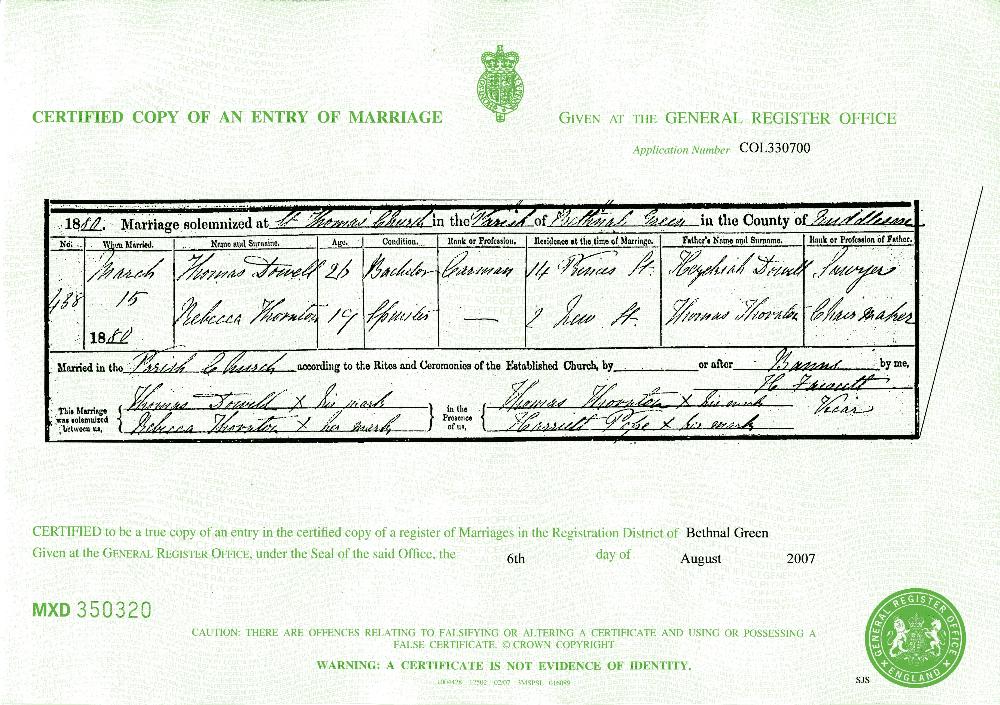 CERTIFIED COPY OF AN ENTRY OF MARRIAGE
GIVEN AT THE GENERAL REGISTER OFFICE
Application Number COL330700
1880. Marriage solemnized at St Thomas' Church in the Parish of Bethnal Green in the County of Middlesex
No. When Married. Name and Surname. Age. Condition. Rank or Profession. Residence at the time of Marriage. Father's Name and Surname. Rank or Profession of Father.
438 March 15 1880
Thomas Dowell 26 Bachelor Carman 14 St. Hezekiah Dowell Sawyer
Rebecca Thornton 19 Spinster — 2 New St. Thomas Thornton Chair maker
Married in the Parish Church according to the Rites and Ceremonies of the Established Church, by or after Banns by me,
H. Vicar
This Marriage was solemnized between us,
Thomas Dowell X his mark
Rebecca Thornton X her mark
in the Presence of us,
Thomas Thornton X his mark
Harriett Pope X her mark
CERTIFIED to be a true copy of an entry in the certified copy of a register of Marriages in the Registration District of Bethnal Green
Given at the GENERAL REGISTER OFFICE, under the Seal of the said Office, the 6th day of August 2007
MXD 350320
CAUTION: THERE ARE OFFENCES RELATING TO FALSIFYING OR ALTERING A CERTIFICATE AND USING OR POSSESSING A
FALSE CERTIFICATE. © CROWN COPYRIGHT
WARNING: A CERTIFICATE IS NOT EVIDENCE OF IDENTITY.
GENERAL REGISTER OFFICE
ENGLAND
SJS